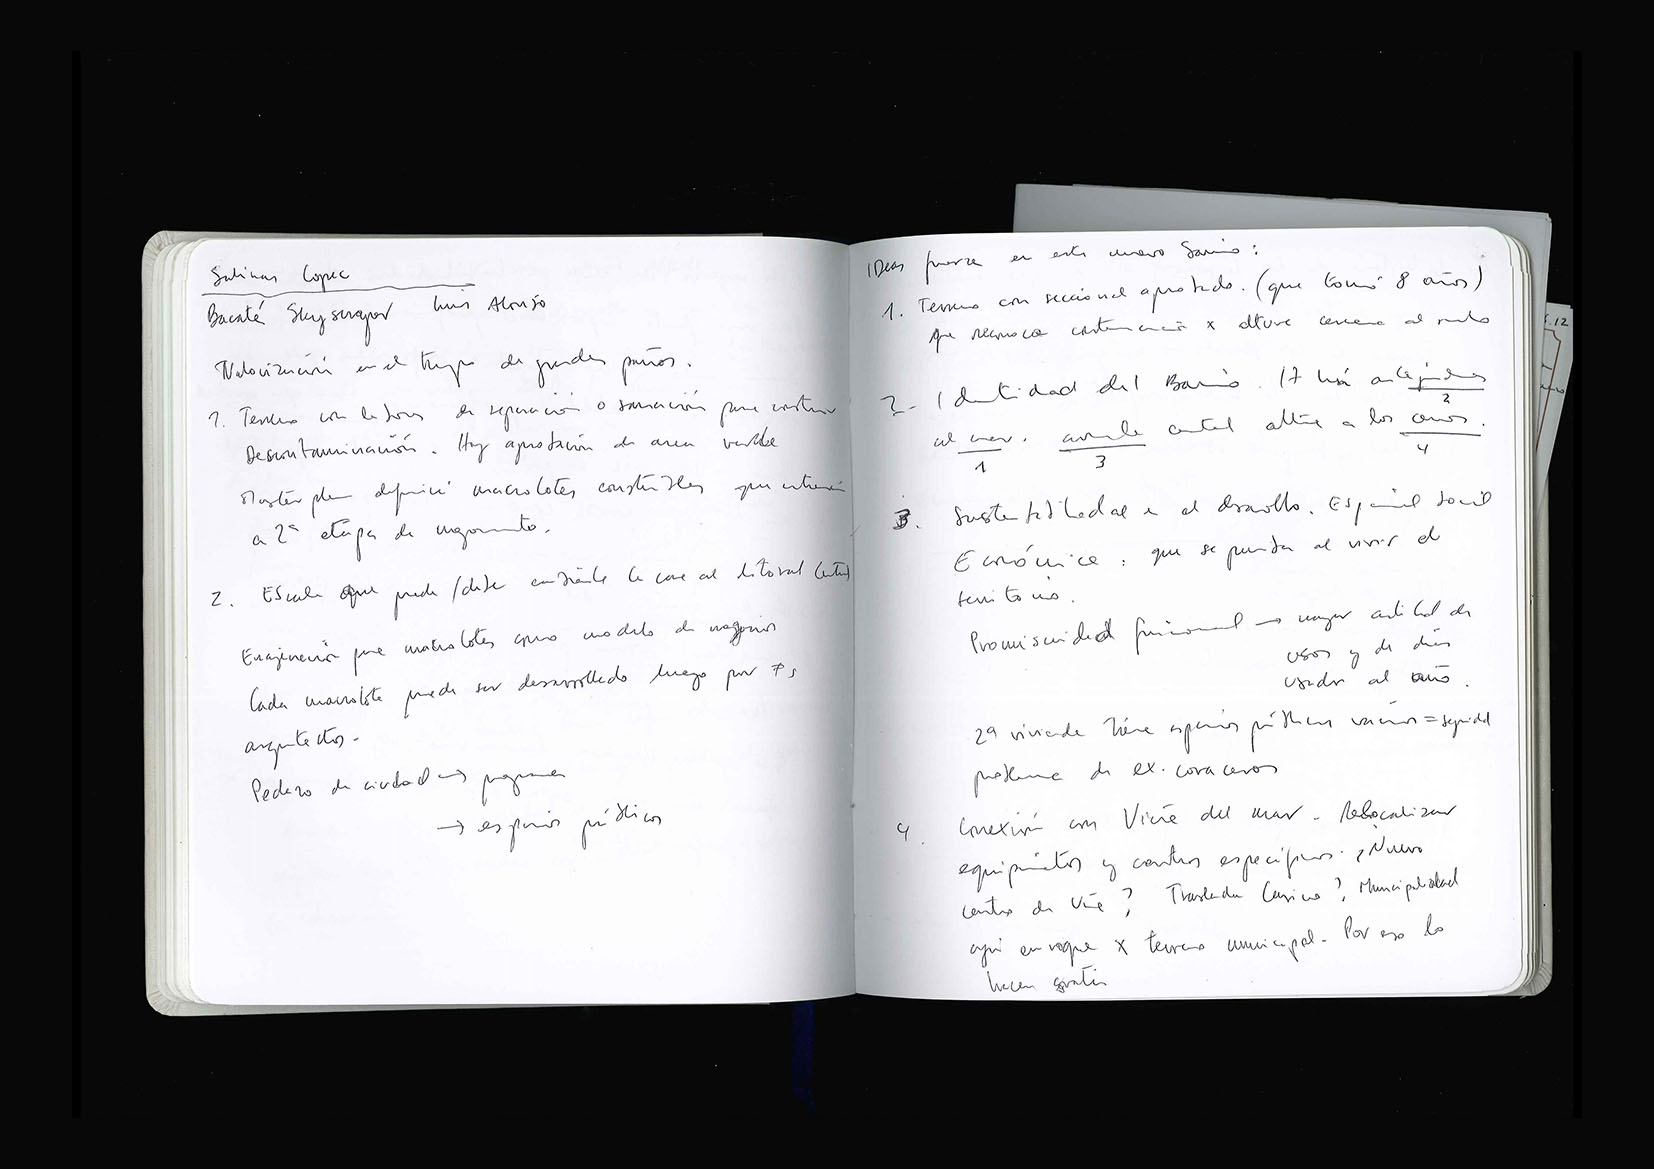 Salinas Copec
Bacatá Skyscraper Luis Alonso
Valorización en el tiempo de grandes paños.
1. Terreno con labores de reparación o sanación para construir
Descontaminación. Hay aprobación de area verde
Master plan definió macrolotes construibles que entrarían
a 2ª etapa de
2. Escala que puede/debe la cara al litoral Central
Enajenación por macrolotes como modelo de negocios
Cada macrolote puede ser desarrollado luego por ≠s
arquitectos.
Pedazo de ciudad → programas
→ espacios públicos
IDeas fuerza en este nuevo Barrio:
1. Terreno con seccional aprobado. (que tomó 8 años)
que reconoce x altura cercana al
2. Identidad del Barrio. 17 há
2
al mar. central a los cerros.
1 3 4
3. Sustentabilidad en el desarrollo. Espacial Social
Económica: que se pueda al vivir el
territorio.
Promiscuidad funcional → mayor cantidad de
usos y de días
usado al año.
2ª vivienda tiene espacios públicos vacíos =
problema de ex. coraceros
4. Conexión con Viña del mar. Relocalizar
equipamientos y centros específicos. ¿Nuevo
centro de Viña? Trasladar Casino? Municipalidad
aquí x terreno municipal. Por eso lo
hacen gratis
6.12